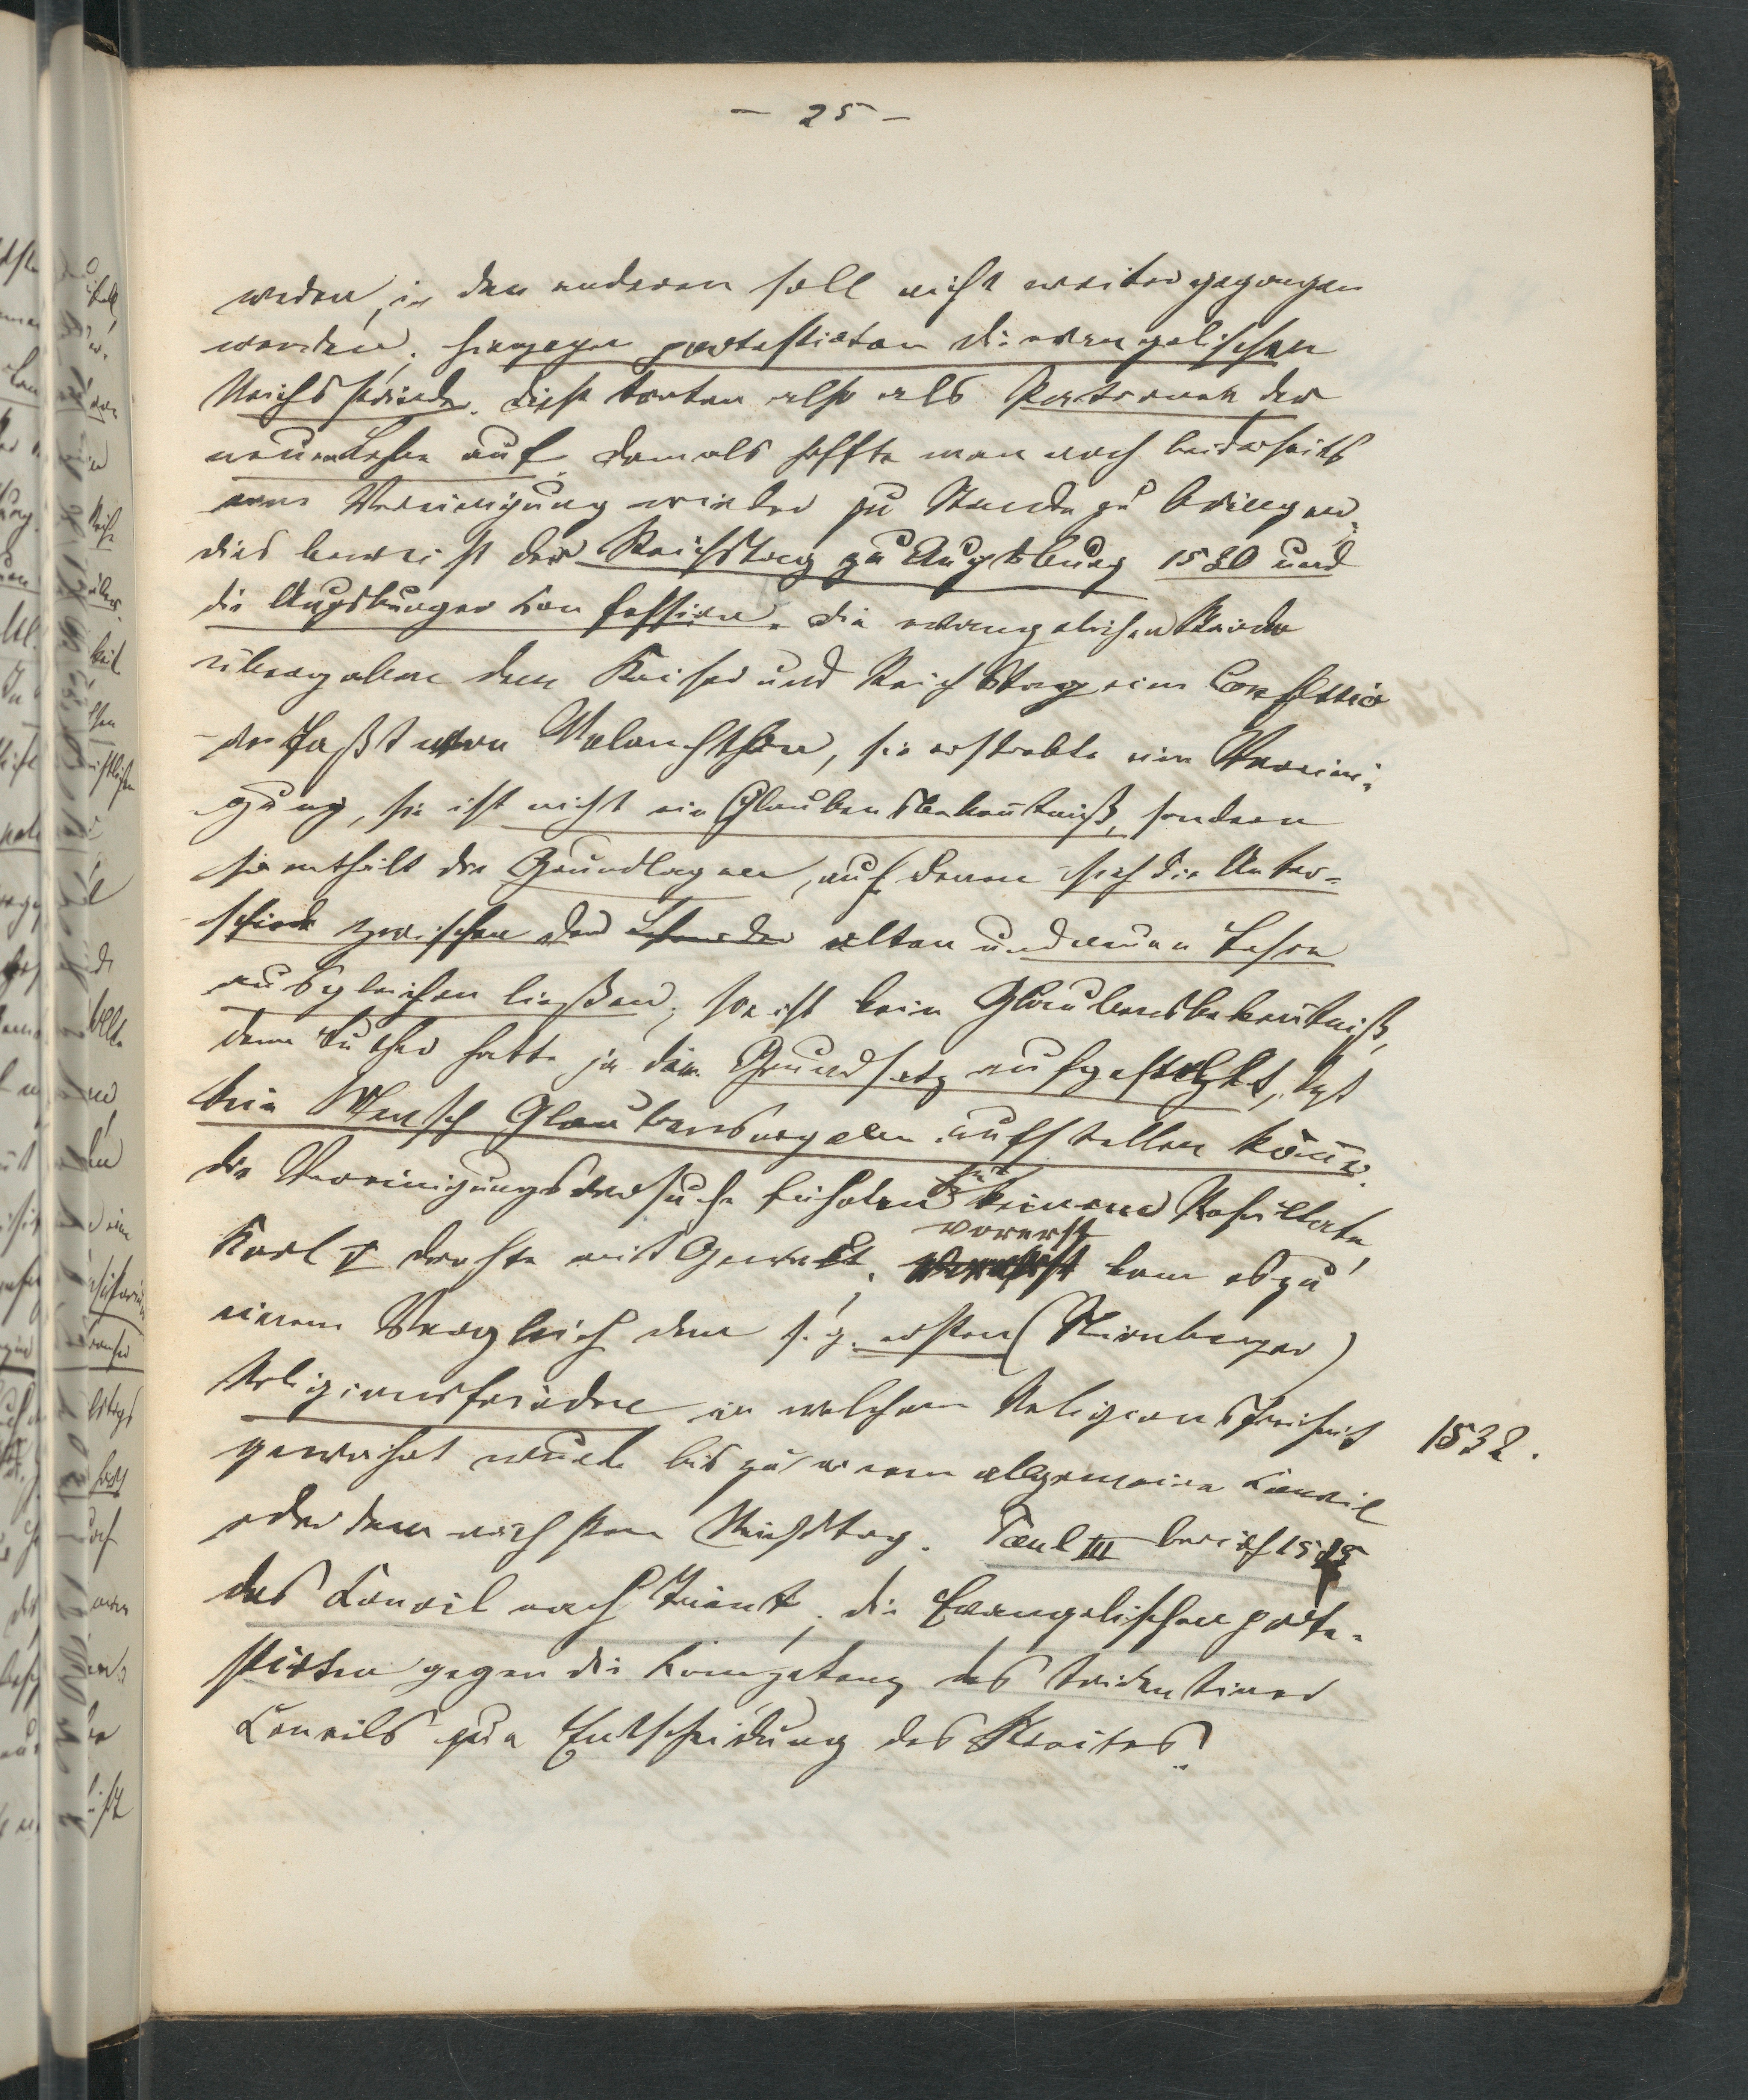 - 25 -
werden, in den anderen soll nicht weitergegangen
werden; hiergegen protestierten die evangelischen
Reichsstände. Diese traten also als Patronen der
neuen Lehre auf. Damals hoffte man noch beiderseits
eine Vereinigung wieder zu Stande zu bringen;
dies beweist der Reichstag zu Augsburg 1530 und
die Augsburger Konfession. Die evangelischen Stände
übergaben dem Kaiser und Reichstag eine Confessio
verfaßt von Melanchthon, sie erstrebte eine Vereini-
gung, sie ist nicht ein Glaubensbekentniß, sondern
sie enthält die Grundlagen, auf denen sich die Unter-
schiede zwischen der Lehre der alten und neuen Lehre
ausgleichen ließen; sie ist kein Glaubensbekentniß,
denn Luther hatte ja den Grundsatz aufgestellt, daß
kein Mensch Glaubensregeln aufstellen könne.
Die Vereinigungsversuche führten zu keinem Resultate,
Karl V drohte mit Gewalt; vorerst kam es zu
einem Vergleich dem s. g. ersten (Nürnberger)
Religionsfrieden in welchem Religionsfreiheit
1532.
gewahrt wurde bis zu einem allgemeinen Koncil
oder dem nächsten Reichstag. Paul III berief 1545
das Koncil nach Trient, die Evangelischen prote-
stirten gegen die Kompetenz des tridentiner
Koncils zur Entscheidung des Streites.